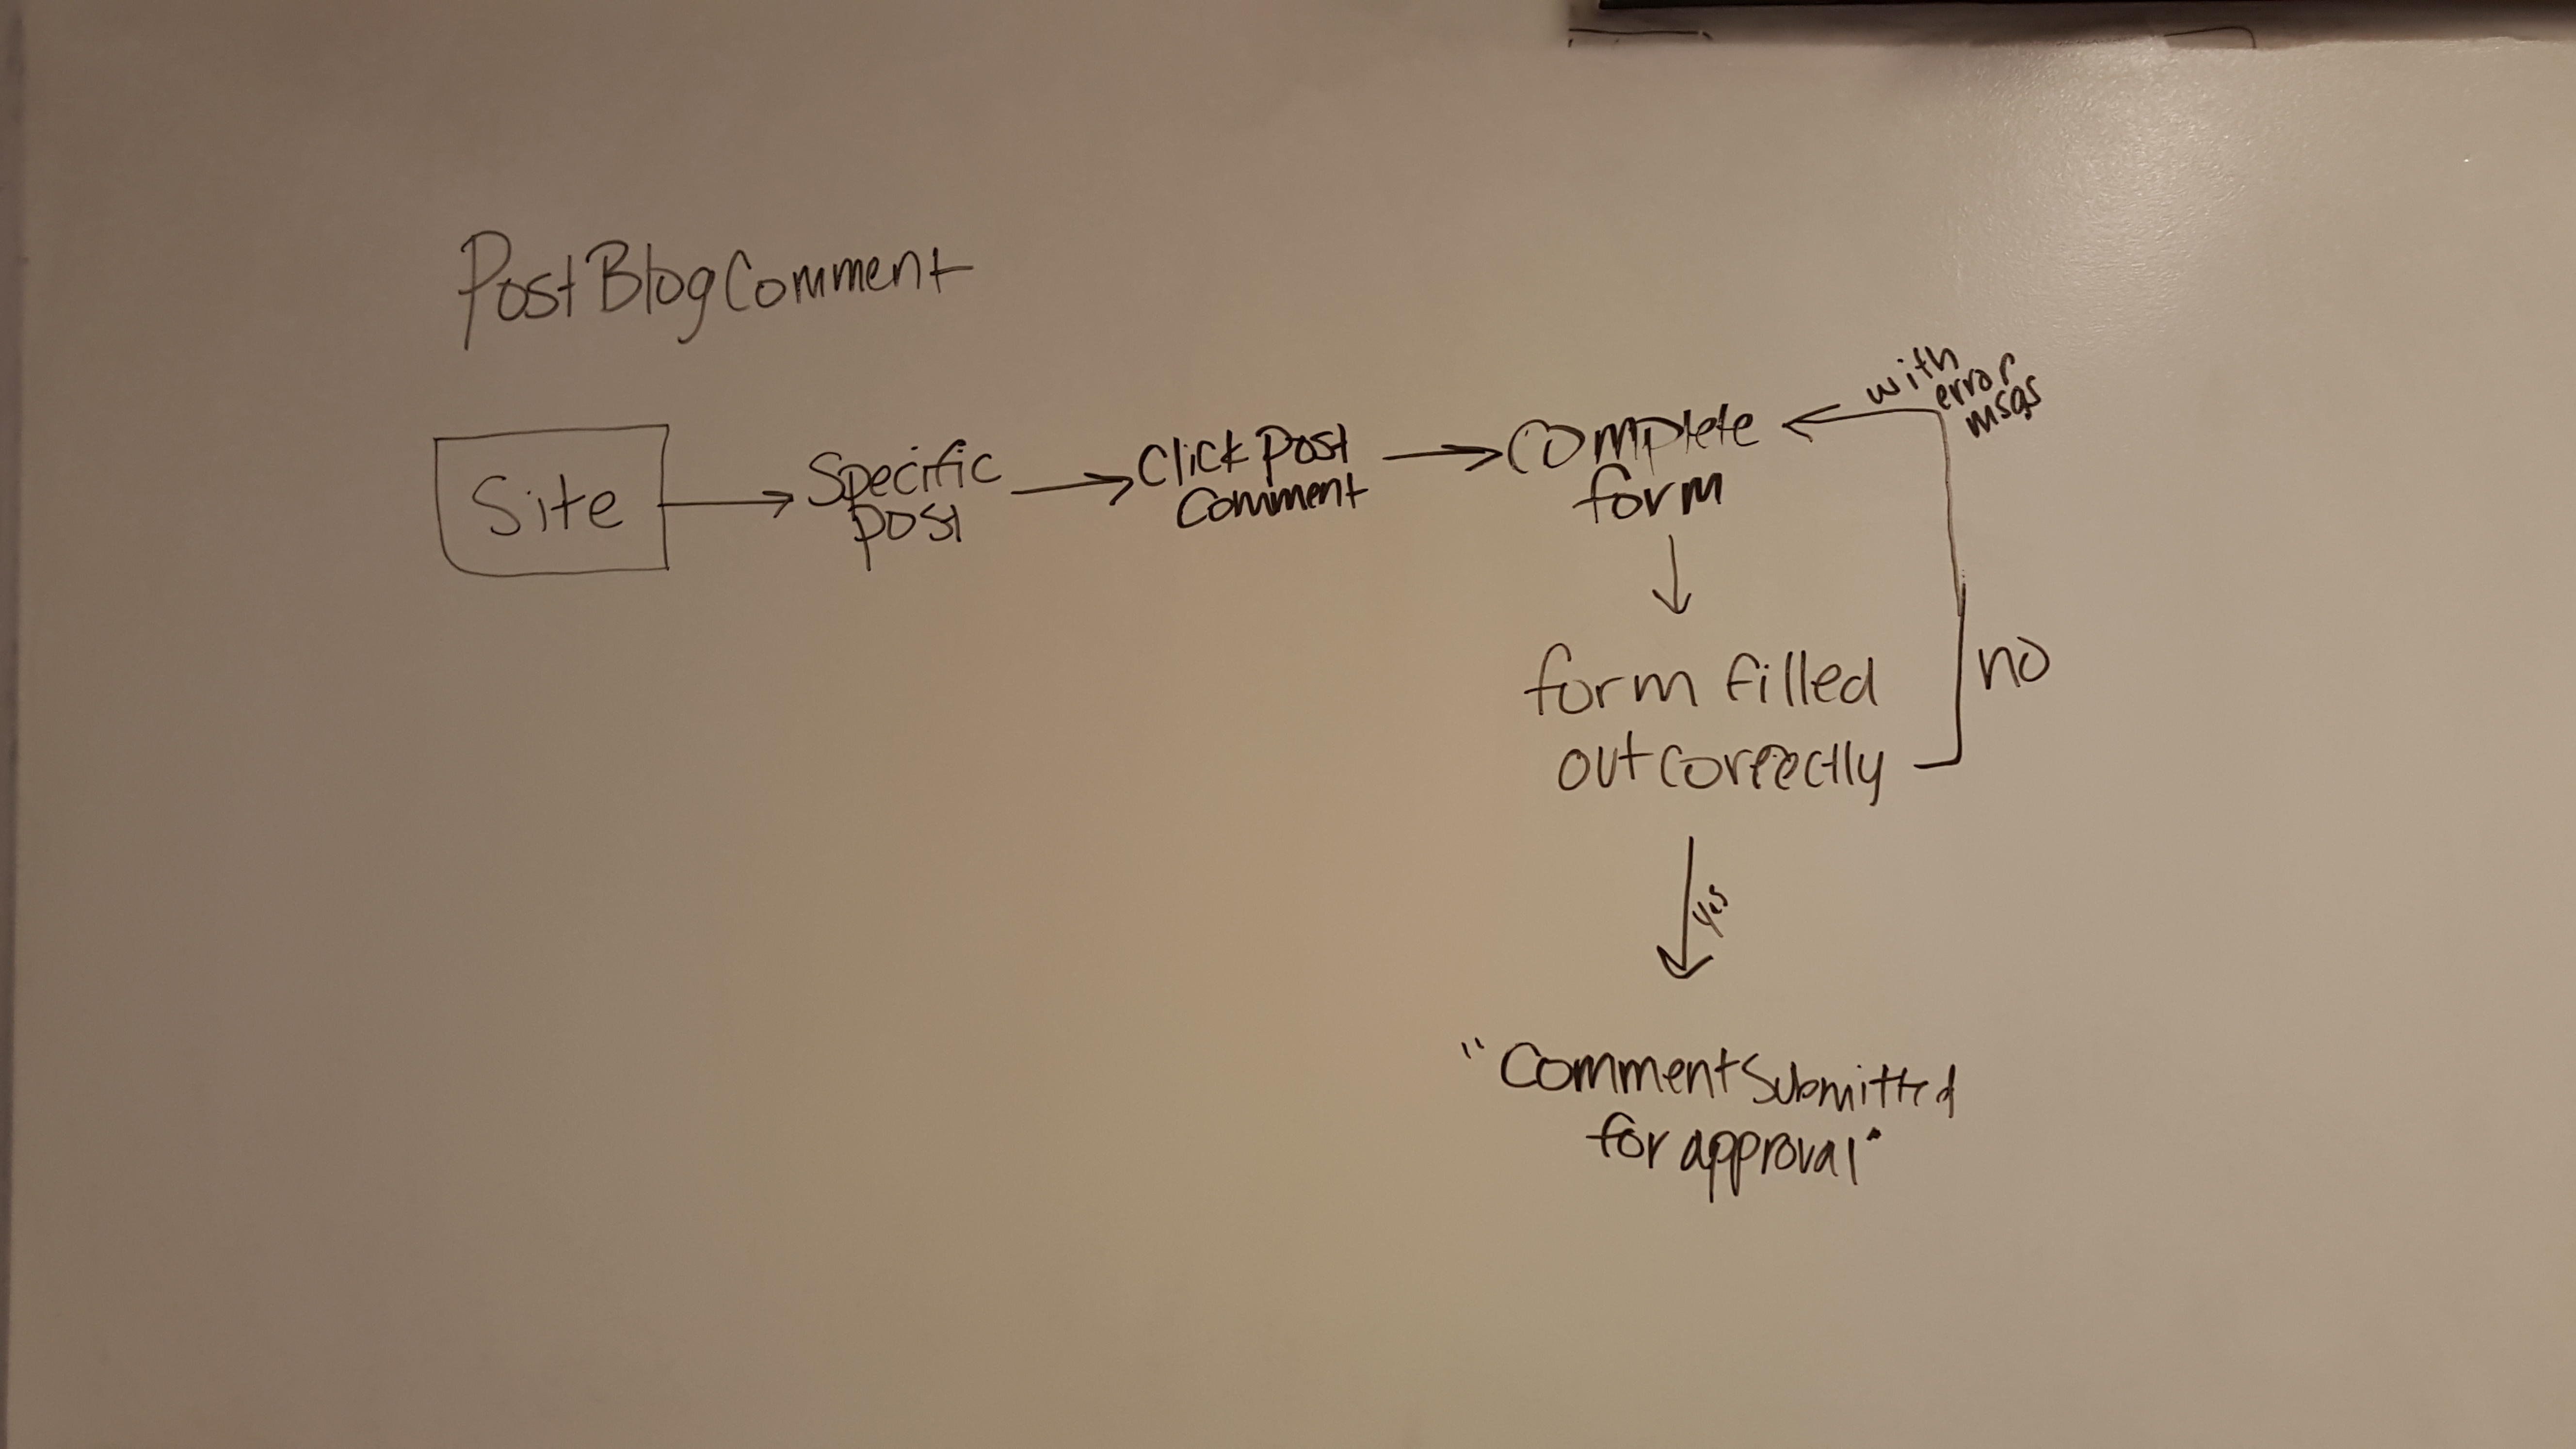 Post Blog Comment
Site
Specific
post
Click Post
Comment
Complete
form
with
error
msgs
form filled
out correctly
no
yes
"Comment Submitted
for approval"